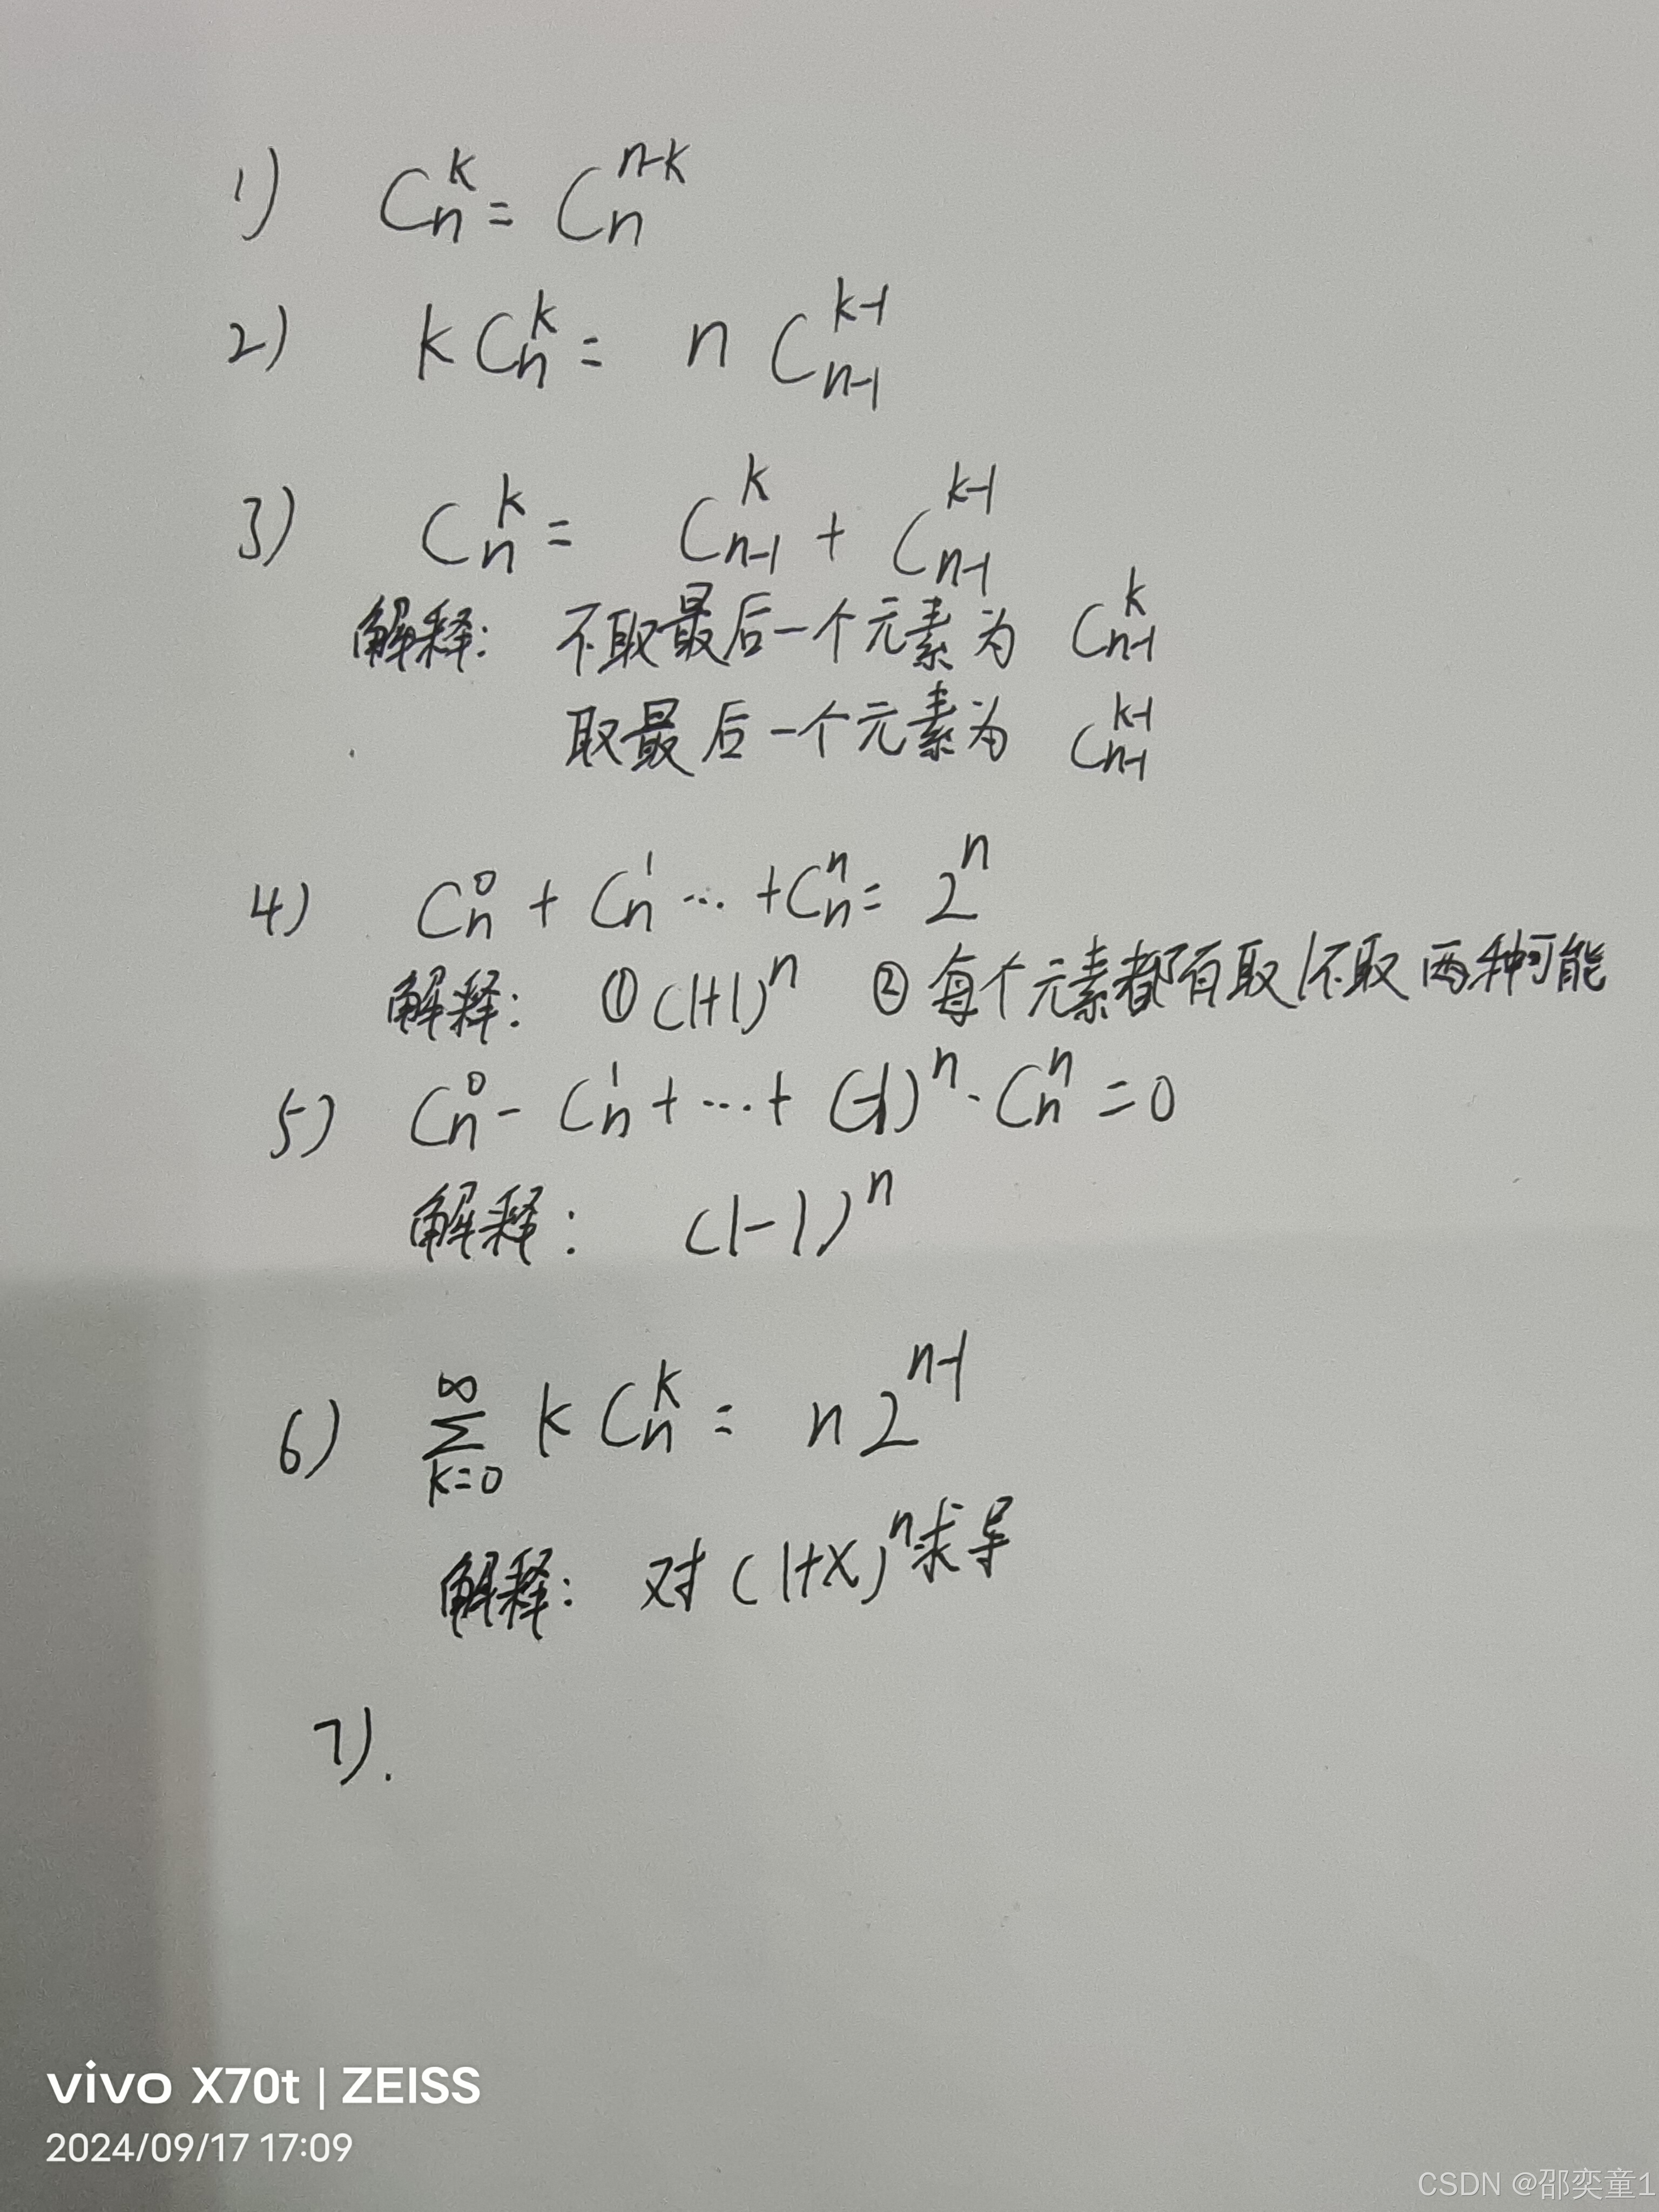 1) $C_n^k = C_n^{n-k}$
2) $k C_n^k = n C_{n-1}^{k-1}$
3) $C_n^k = C_{n-1}^k + C_{n-1}^{k-1}$
解释: 不取最后一个元素为 $C_{n-1}^k$
取最后一个元素为 $C_{n-1}^{k-1}$
4) $C_n^0 + C_n^1 \cdots + C_n^n = 2^n$
解释: ① $(1+1)^n$ ② 每个元素都有取/不取两种可能
5) $C_n^0 - C_n^1 + \cdots + (-1)^n \cdot C_n^n = 0$
解释: $(1-1)^n$
6) $\sum_{k=0}^{\infty} k C_n^k = n 2^{n-1}$
解释: 对 $(1+x)^n$ 求导
7).
vivo X70t | ZEISS
2024/09/17 17:09
CSDN @邵奕童1